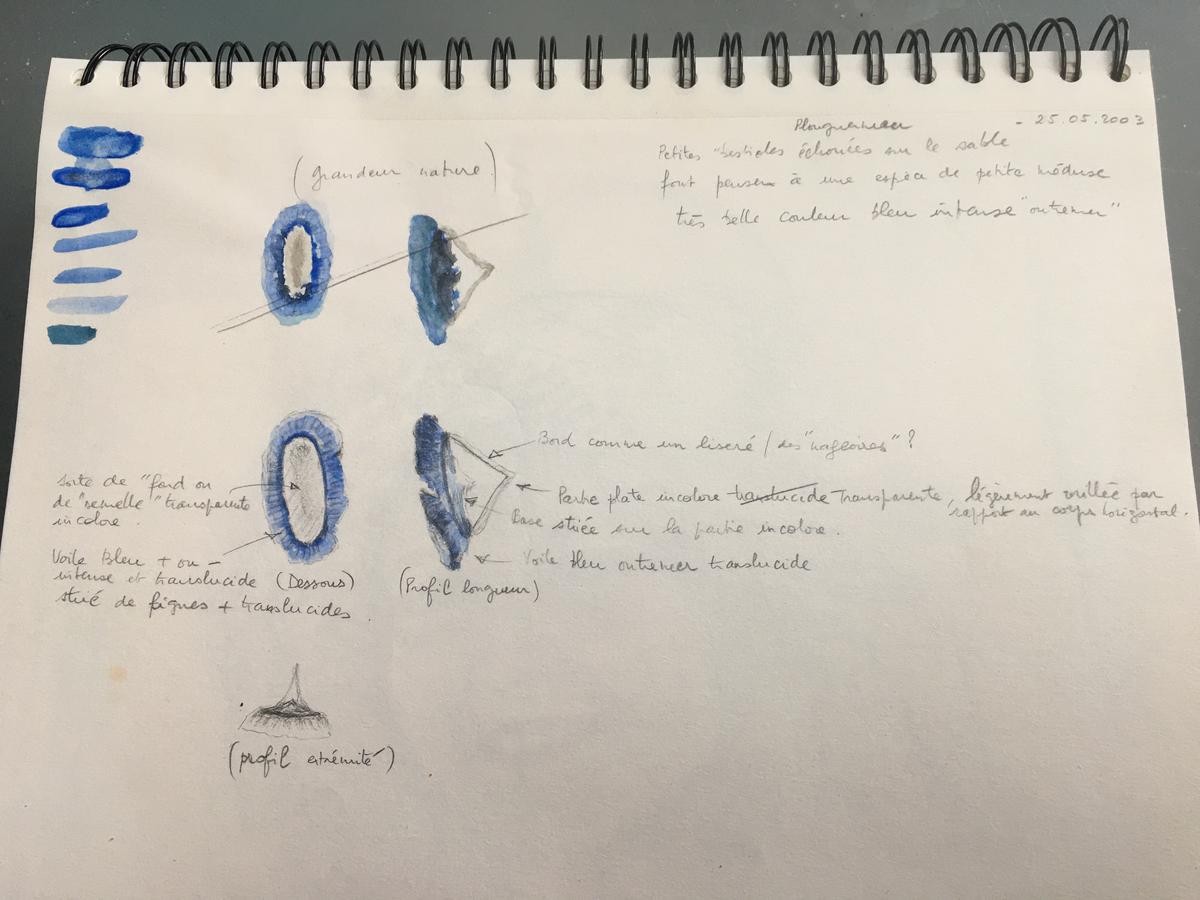 Plouguerneau - 25.05.2003
Petites "bestioles échouées sur le sable
font penser à une espèce de petite méduse
très belle couleur bleu intense "outremer"
(grandeur nature)
Bord comme un liseré / des "nageoires" ?
Sorte de "fond ou
de "semelle" transparente
incolore.
Partie plate incolore translucide Transparente, légèrement vrillée par
rapport au corps horizontal.
Base striée sur la partie incolore.
Voile bleu outremer translucide
Voile Bleu + ou -
intense et translucide (Dessous)
strié de lignes + translucides.
(Profil longueur)
(profil extrémité)